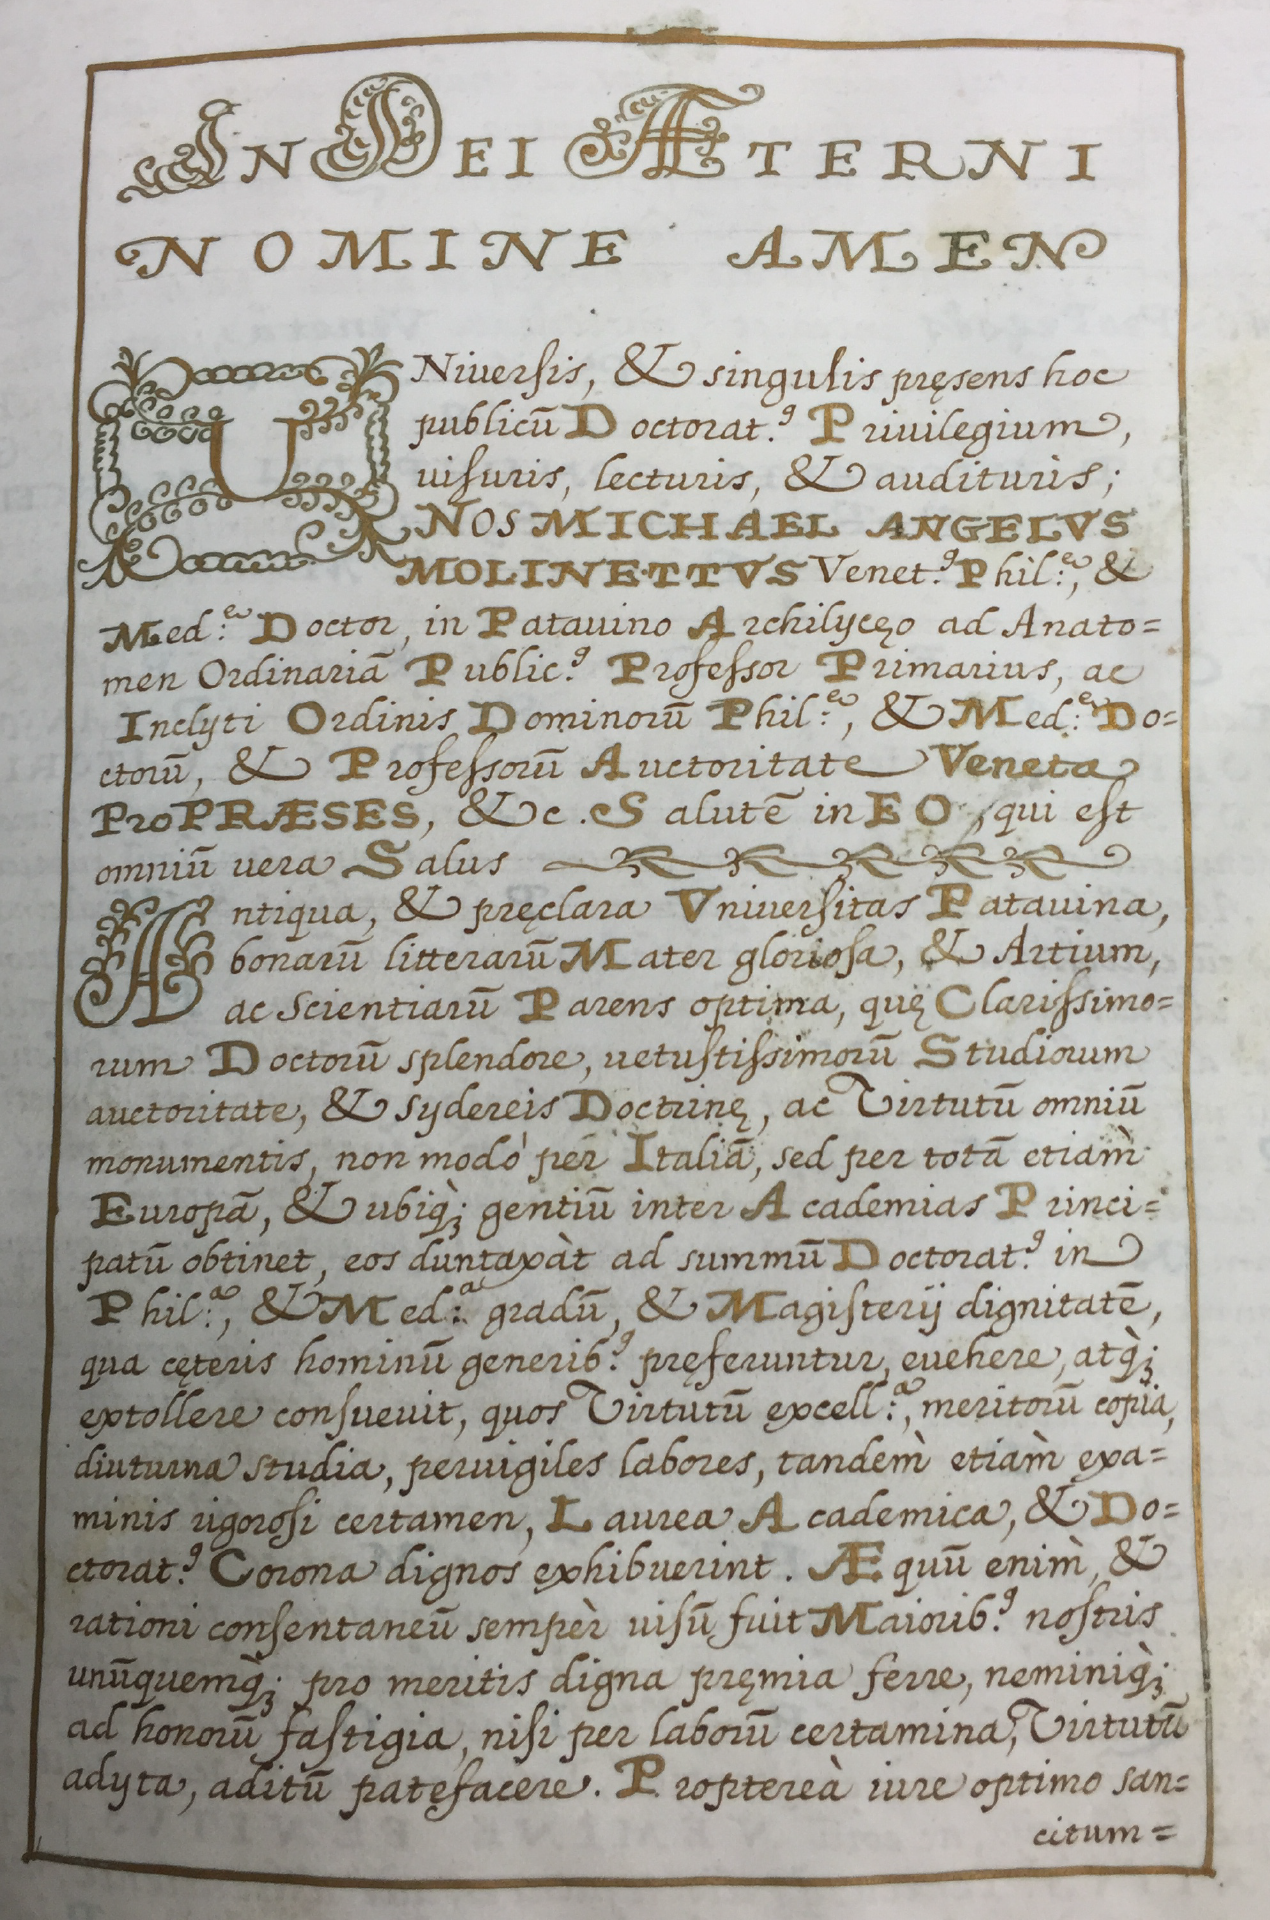 IN DEI ÆTERNI
NOMINE AMEN
UNiuersis, & singulis pręsens hoc
publicū Doctorat.9 Priuilegium,
uisuris, lecturis, & audituris;
NOS MICHAEL ANGELVS
MOLINETTVS Venet.9 Phil:ę, &
Med:ę Doctor, in Patauino Archilycęo ad Anato=
men Ordinariā Public.9 Professor Primarius, ac
Inclyti Ordinis Dominorū Phil:ę, & Med:ę Do=
ctorū, & Professorū Auctoritate Veneta
ProPRÆSES, &c. Salutē in EO, qui est
omniū uera Salus
Antiqua, & pręclara Vniuersitas Patauina,
bonarū litterarū Mater gloriosa, & Artium,
ac Scientiarū Parens optima, quę Clarissimo=
rum Doctorū splendore, uetustissimorū Studiorum
auctoritate, & sydereis Doctrinę, ac Virtutū omniū
monumentis, non modò per Italiā, sed per totā etiam̀
Europā, & ubiq̀; gentiū inter Academias Princi=
patū obtinet, eos duntaxàt ad summū Doctorat.9 in
Phil:a, & Med:a gradū, & Magisterij dignitatē,
qua cęteris hominū generib.9 pręferuntur, euehere, atq̀;
extollere consueuit, quos Virtutū excell:a, meritorū copia,
diuturna studia, peruigiles labores, tandem̀ etiam̀ exa=
minis rigorosi certamen, Laurea Academica, & Do=
ctorat.9 Corona dignos exhibuerint. Æquū enim̀, &
rationi consentaneū sempèr uisū fuit Maiorib.9 nostris
unūquemq̀; pro meritis digna pręmia ferre, neminiq̀;
ad honorū fastigia, nisi per laborū certamina, Virtutū
adyta, aditū patefacere. Proptereà iure optimo san=
citum=